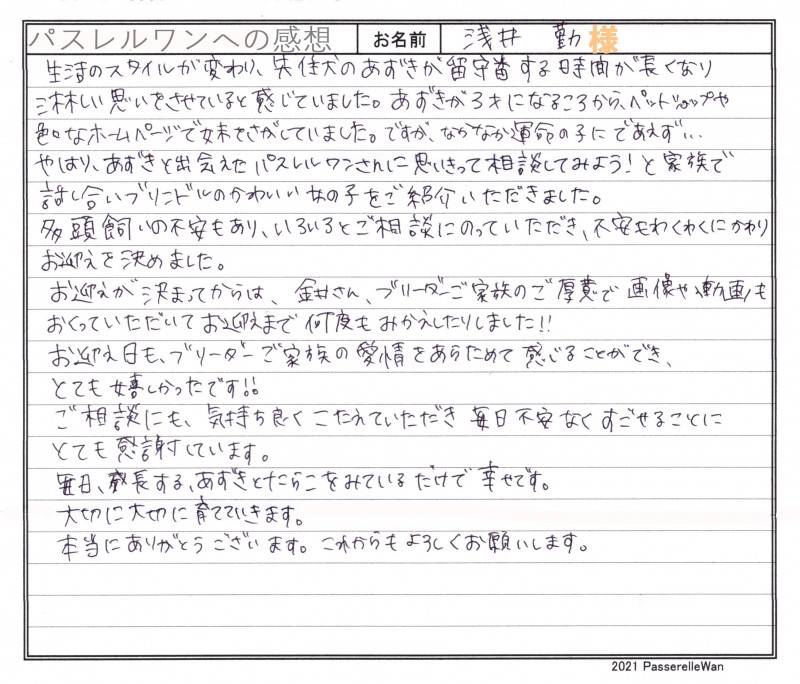 パスレルワンへの感想 お名前 浅井 勤 様
生活のスタイルが変わり、先住犬のあずきが留守番する時間が長くなり
淋しい思いをさせていると感じていました。あずきが3才になるころから、ペットショップや
色々なホームページで妹をさがしていました。ですが、なかなか運命の子にであえず…
やはり、あずきと出会えたパスレルワンさんに思いきって相談してみよう!と家族で
話し合いブリンドルのかわいい女の子をご紹介いただきました。
多頭飼いの不安もあり、いろいろとご相談にのっていただき、不安もわくわくにかわり
お迎えを決めました。
お迎えが決まってからは、金井さん、ブリーダーご家族のご厚意で画像や動画も
おくっていただいてお迎えまで何度もみかえしたりしました!!
お迎え日も、ブリーダーご家族の愛情をあらためて感じることができ、
とても嬉しかったです!!
ご相談にも、気持ち良くこたえていただき毎日不安なくすごせることに
とても感謝しています。
毎日、成長する、あずきとたらこをみているだけで幸せです。
大切に大切に育てていきます。
本当にありがとうございます。これからもよろしくお願いします。
2021 PasserelleWan